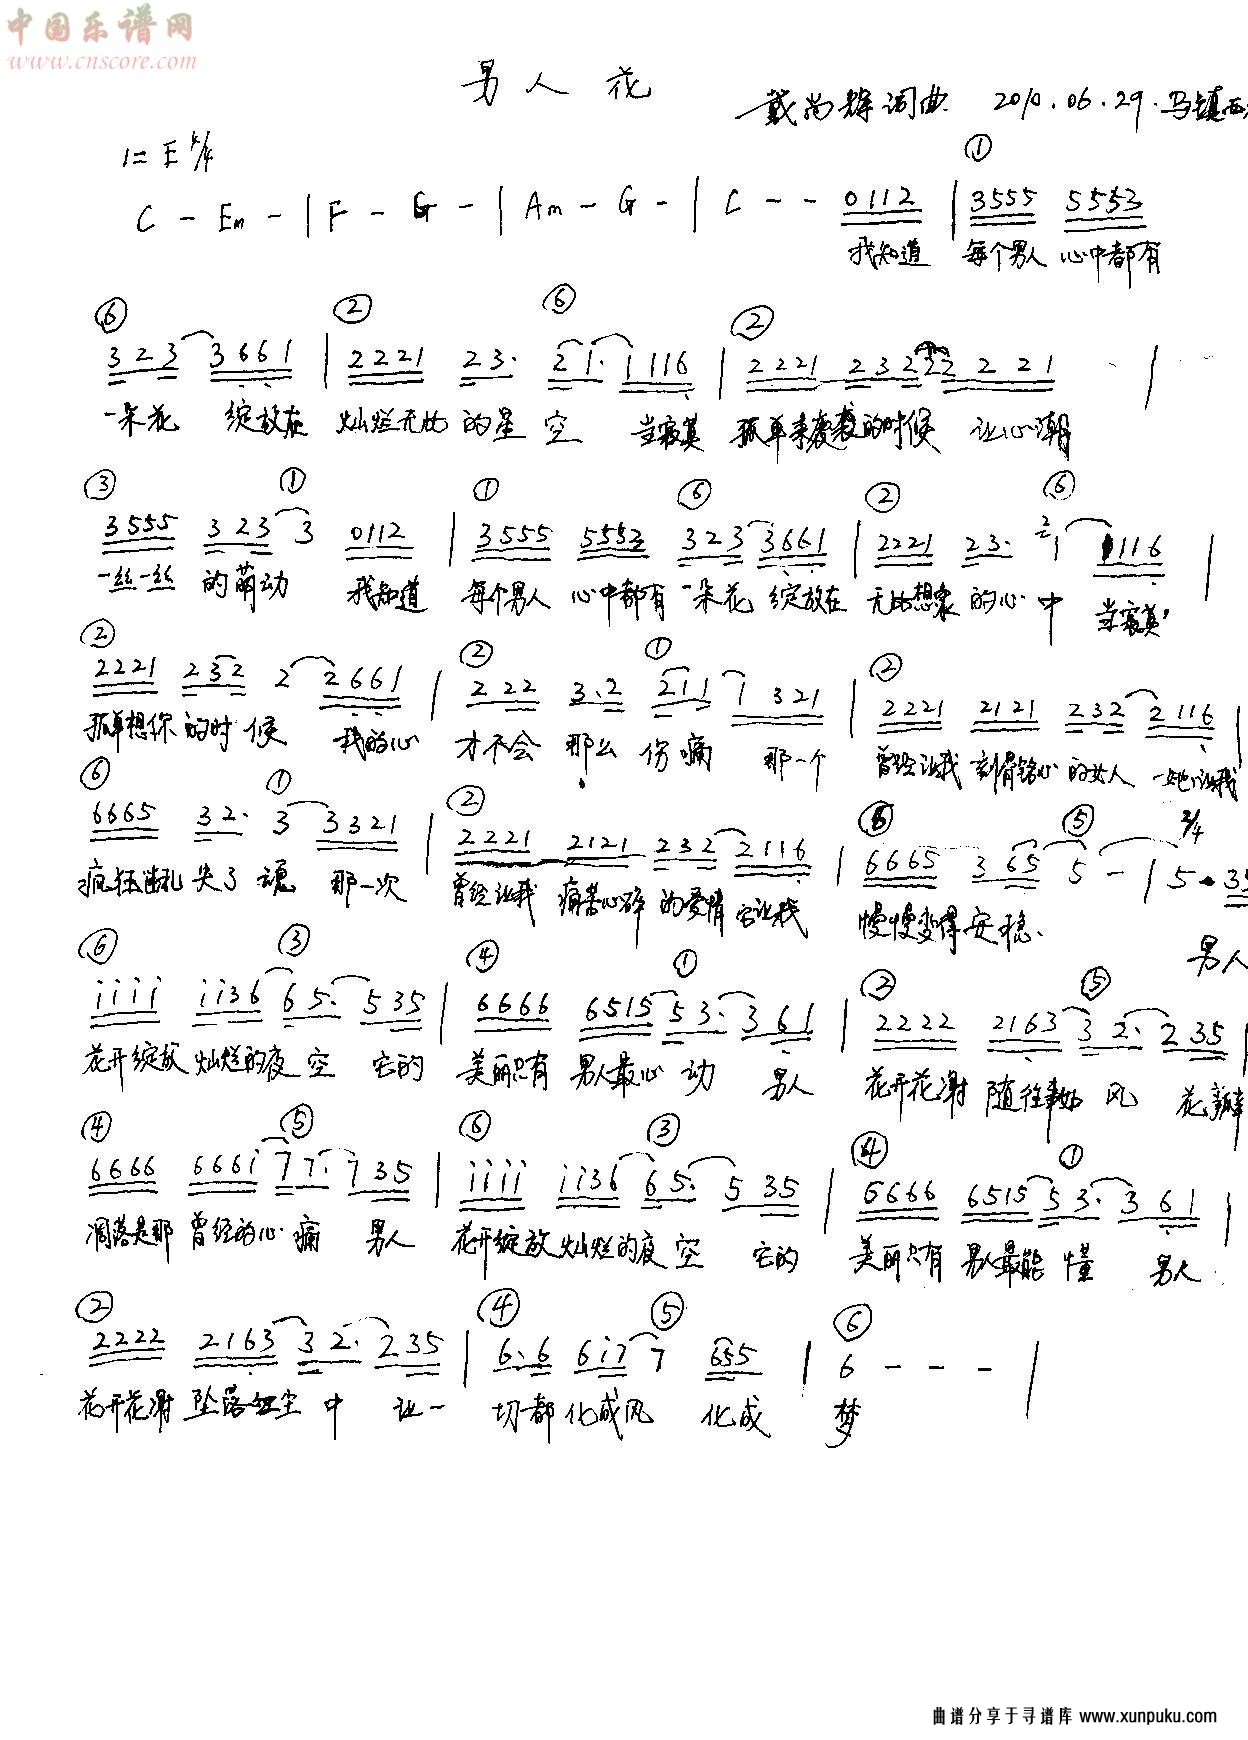 中国乐谱网
www.cnscore.com
男人花
戴尚辉词曲 2010.06.29.马镇西
1=E 4/4
C - Em - | F - G - | Am - G - | C - - 0112 | ① 3555 5553
我知道 每个男人 心中都有
⑥ ② ⑥ ②
323 3661 | 2221 23. 21. 1116 | 2221 232 22 221 |
一朵花 绽放在 灿烂无比 的星空 当寂寞 孤单来袭的时候 让心潮
③ ① ① ⑥ ② ⑥
3555 323 3 0112 | 3555 5553 323 3661 | 2221 23. 21 1116 |
一丝一丝 的萌动 我知道 每个男人 心中都有 一朵花 绽放在 无比想象 的心中 当寂寞
② ② ① ②
2221 232 2 2661 | 222 3.2 211 1 321 | 2221 2121 232 2116 |
孤单想你 的时候 我的心 才不会 那么 伤痛 那一个 曾经让我 刻骨铭心 的女人 她让我
⑥ ① ② ⑥ ⑤ 2/4
6665 32. 3 3321 | 2221 2121 232 2116 | 6665 3 65 5 - | 5. 35
疯狂 失了魂 那一次 曾经让我 痛苦心碎 的爱情 它让我 慢慢变得安稳、 男人
⑥ ③ ④ ① ② ⑤
iiii ii36 65. 535 | 6666 6515 53. 361 | 2222 2163 32. 235 |
花开绽放 灿烂的夜空 它的 美丽只有 男人最心动 男人 花开花谢 随往事如风 花瓣
④ ⑤ ⑥ ③ ④ ①
6666 666i 77. 735 | iiii ii36 65. 535 | 6666 6515 53. 361 |
凋落是那 曾经的心痛 男人 花开绽放 灿烂的夜空 它的 美丽只有 男人最能懂 男人
② ④ ⑤ ⑥
2222 2163 32. 235 | 6.6 6i7 7 655 | 6 - - - |
花开花谢 坠落红尘中 让一 切都化成风 化成 梦
曲谱分享于寻谱库 www.xunpuku.com